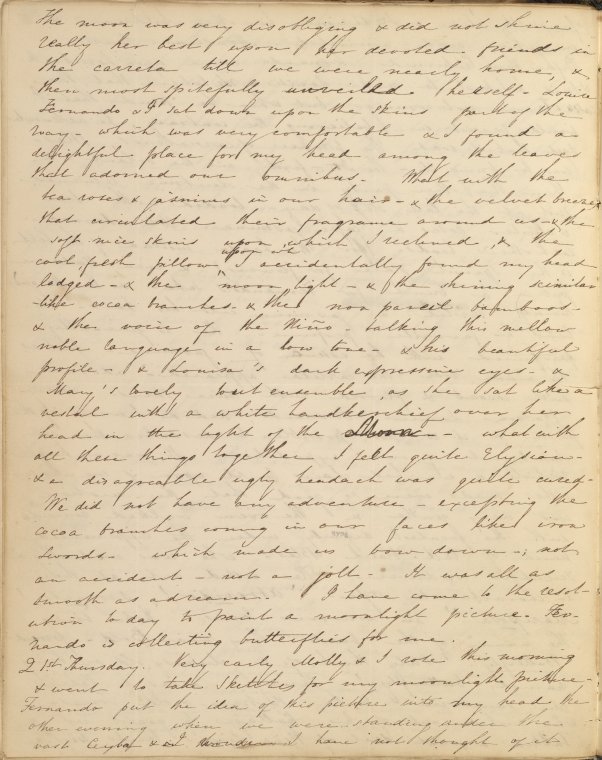 The moon was very disobliging & did not shine
really her best upon her devoted friends in
the carreta till we were nearly home, &
then most spitefully unveiled herself - Louisa
Fernando & I sat down upon the skins part of the
way - which was very comfortable & I found a
delightful place for my head among the leaves
that adorned our omnibus - What with the
tea roses & jasmins in our hair - & the velvet breeze
that circulated their fragrance around us - & the
soft nice skins upon which I reclined, & the
cool fresh pillow upon wh I accidentally found my head
lodged - & the moon light - & the shining scimitar
like cocoa branches - & the non pareil bamboos -
& the voice of the Niño - talking this mellow
noble language in a low tone - & his beautiful
profile - & Louisa's dark expressive eyes - &
Mary's lovely tout ensemble, as she sat like a
vestal with a white handkerchief over her
head in the light of the Moon - what with
all these things together I felt quite Elysian -
& a disagreeable ugly headach was quite cured -
We did not have any adventure - excepting the
cocoa branches coming in our faces like iron
swords - which made us bow down -; not
an accident - not a jolt - It was all as
smooth as a dream. I have come to the resol-
ution to day to paint a moonlight picture. Fer-
nando is collecting butterflies for me.
21st Thursday. Very early Molly & I rose this morning
& went to take sketches for my moonlight picture -
Fernando put the idea of this picture into my head the
other evening when we were standing under the
vast Ceyba & I have not thought of it